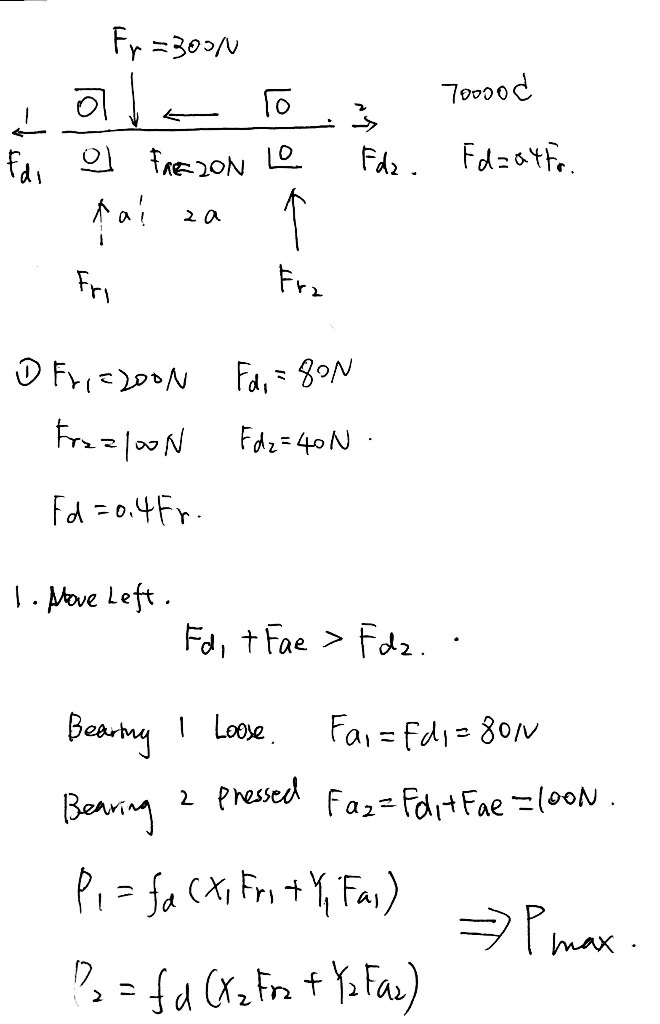 Fr = 300N
70000C
1
2
Fd1
Fae=20N
Fd2.
Fd=0.4Fr.
a
2a
Fr1
Fr2
① Fr1=200N Fd1=80N
Fr2=100N Fd2=40N.
Fd=0.4Fr.
1. Move Left.
Fd1 + Fae > Fd2.
Bearing 1 Loose. Fa1=Fd1=80N
Bearing 2 pressed Fa2=Fd1+Fae=100N.
P1 = fd (X1Fr1+Y1Fa1)
⇒ Pmax.
P2 = fd (X2Fr2+Y2Fa2)